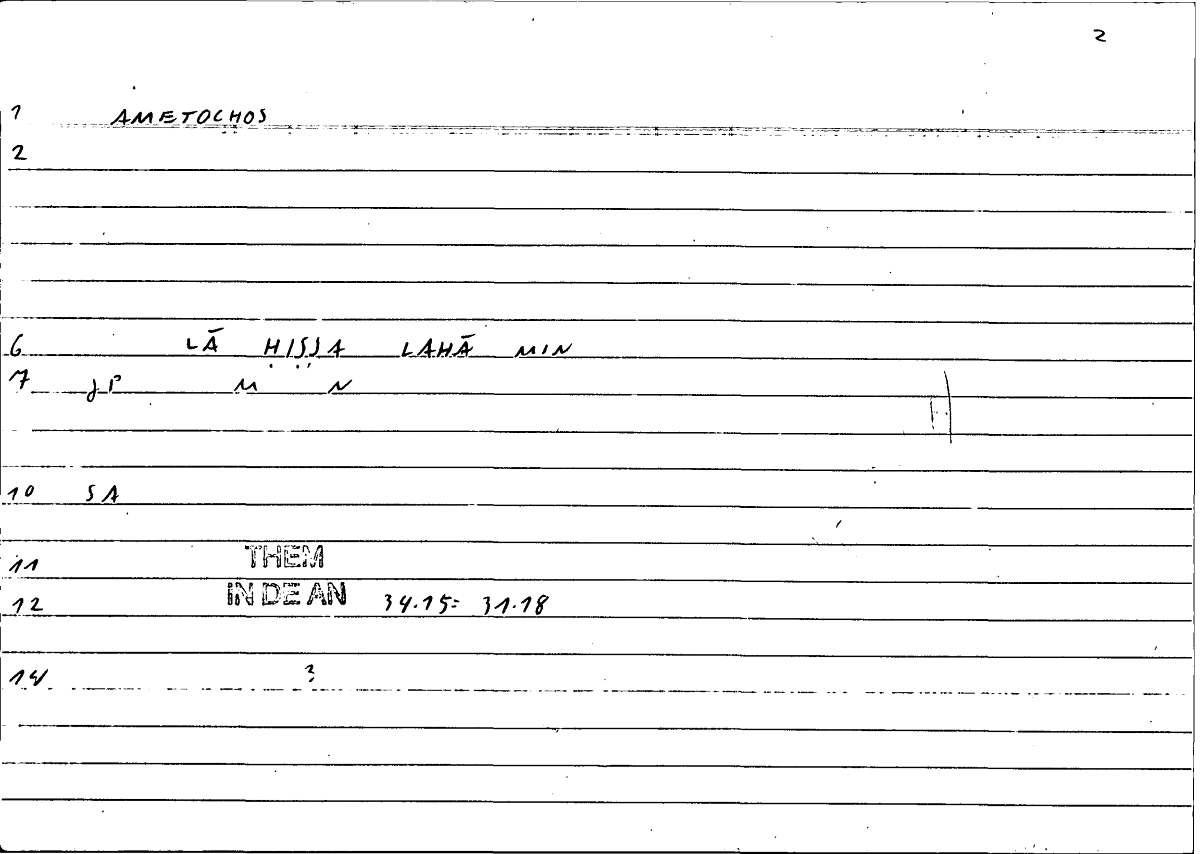 2
1 AMETOCHOS
2
6 LĀ ḤIṢṢA LAHĀ MIN
7 JP M N
10 SA
11 THEM
12 IN DE AN 34.15= 31.18
14 ?